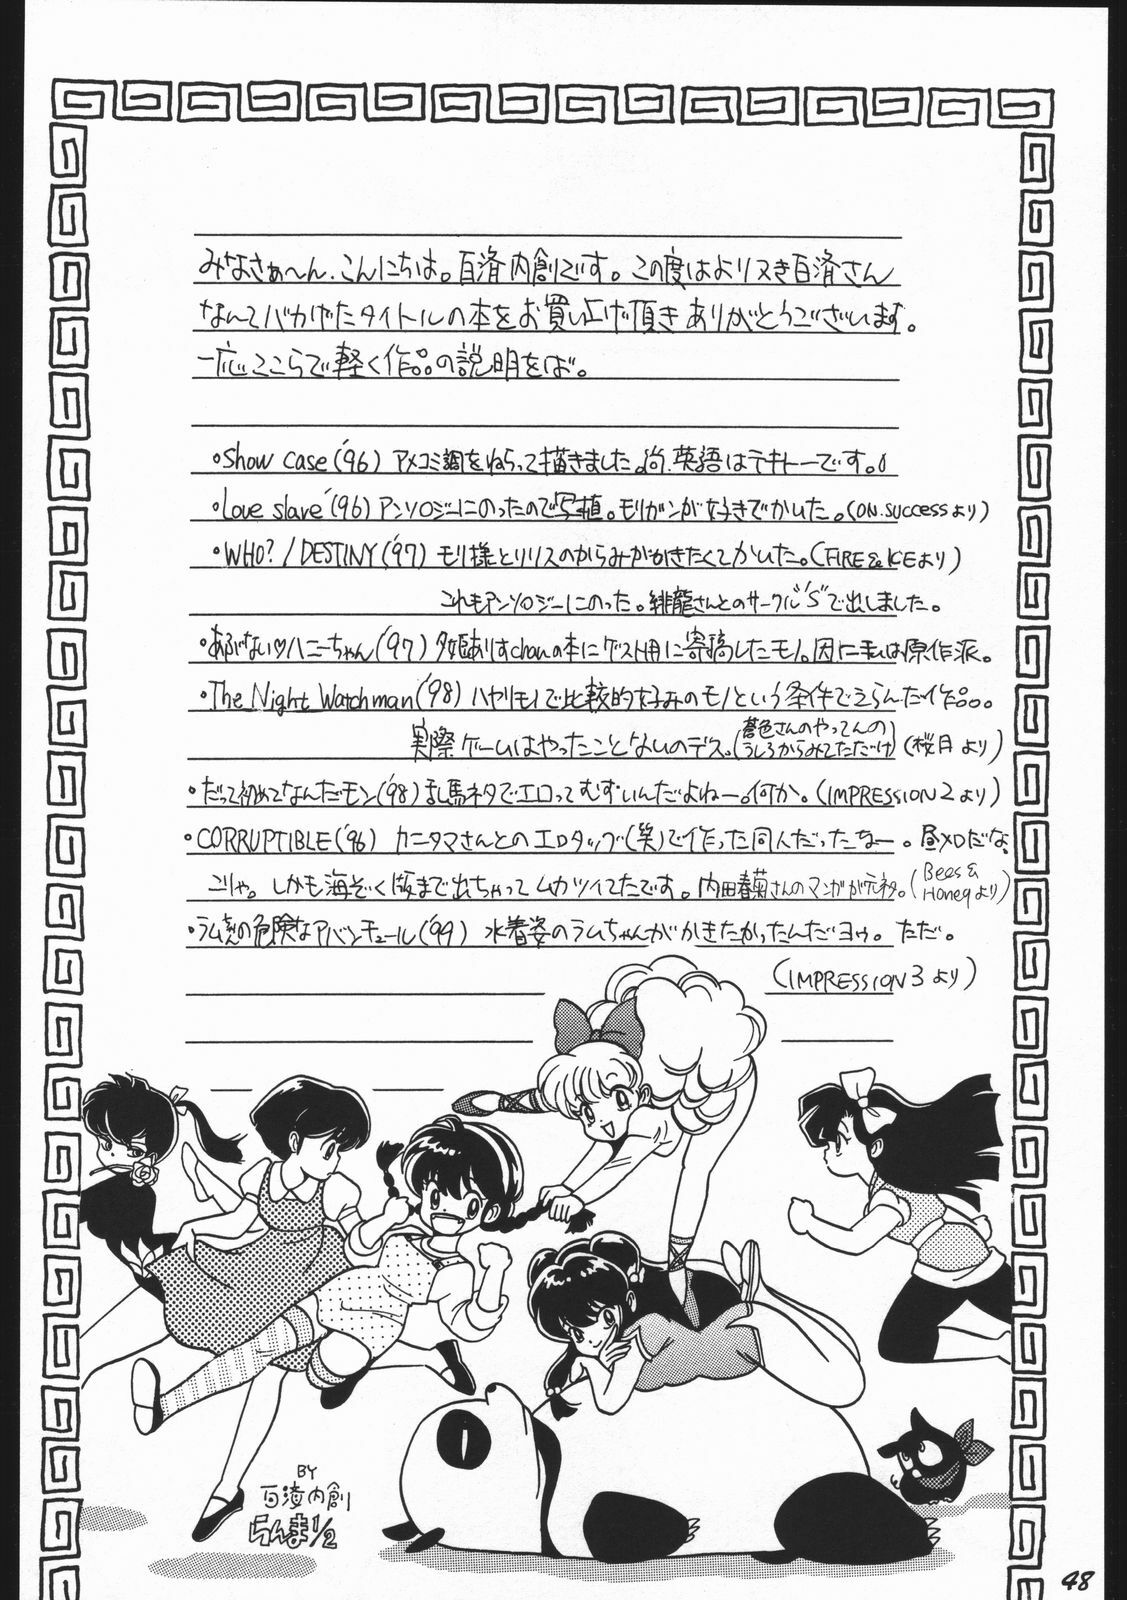 みなさぁ～ん、こんにちは。百済内創です。この度はよりヌき百済さん
なんてバカげたタイトルの本をお買い上げ頂きありがとうございます。
一応ここらで軽く作品の説明をば。
・Show case('96) アメコミ調をねらって描きました。尚、英語はテキトーです。
・Love slave('96) アンソロジーにのったので写植。モリガンが好きでかいた。(ON.SUCCESSより)
・WHO?/DESTINY('97) モリ様とリリスのからみがかきたくてかいた。(FIRE&ICEより)
これもアンソロジーにのった。緋龍さんとのサークル"S"で出しました。
・あぶない♡ハニーちゃん('97) 夕姫ありすchanの本にゲスト用に寄稿したモノ。因に私は原作派。
・The Night Watchman('98) ハヤリモノで比較的好みのモノという条件でえらんだ作品。
実際ゲームはやったことないのデス。(蒼色さんのやってんの
うしろからみてただけ) (桜月より)
・だって初めてなんだモン('98) 乱馬ネタでエロってむずいんだよねー。何か。(IMPRESSION2より)
・CORRUPTIBLE('96) カニタマさんとのエロタッグ(笑)で作った同人だったなー。昼メロだな、
こりゃ。しかも海ぞく版まで出ちゃってムカツイてたです。内田春菊さんのマンガが元ネタ。(Bees &
Honeyより)
・ラムの危険なアバンチュール('99) 水着姿のラムちゃんがかきたかったんだヨゥ。ただ。
(IMPRESSION3より)
BY
百済内創
らんま1/2
48